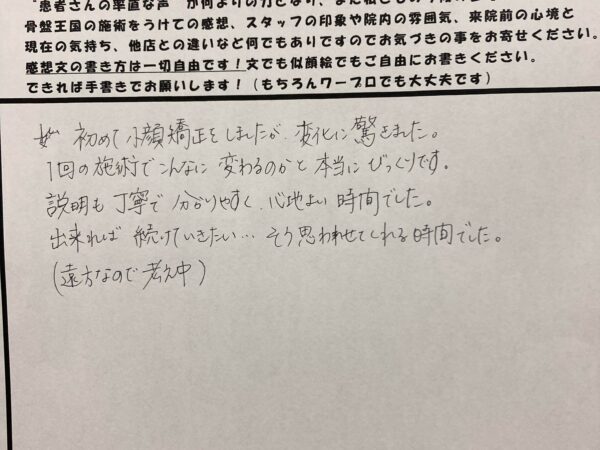 "患者さんの率直な声"が何よりの力となり、また
骨盤王国の施術をうけての感想、スタッフの印象や院内の雰囲気、来院前の心境と
現在の気持ち、他店との違いなど何でもありですのでお気づきの事をお寄せください。
感想文の書き方は一切自由です!文でも似顔絵でもご自由にお書きください。
できれば手書きでお願いします!(もちろんワープロでも大丈夫です)
初めて小顔矯正をしましたが、変化に驚きました。
1回の施術でこんなに変わるのかと本当にびっくりです。
説明も丁寧で分かりやすく、心地よい時間でした。
出来れば続けていきたい… そう思わせてくれる時間でした。
(遠方なので考え中)